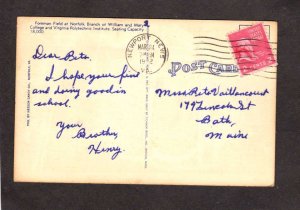 Foreman Field at Norfolk, Branch of William and Mary
College and Virginia Polytechnic Institute, Seating Capacity
18,000
2
NEWPORT NEWS
MAR 24
VA.
POST CARD
2 CENTS 2
Dear Reta.
I hope your fine
and doing good in
school.
your
Brother,
Henry.
Miss Reta Vaillancourt
179 Lincoln St
Bath,
Maine